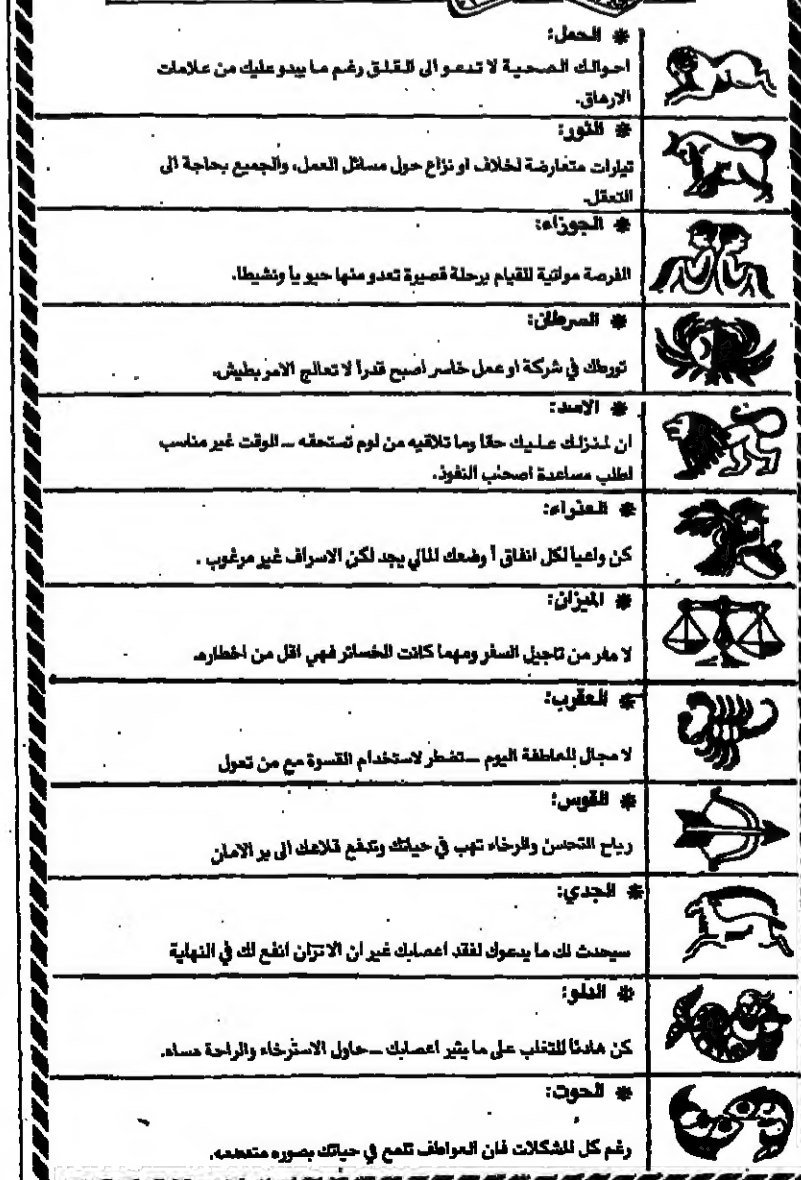 * الحمل:
احوالك الصحية لا تدعو الى القلق رغم ما يبدو عليك من علامات
الارهاق.
* الثور:
تيارات متعارضة لخلاف او نزاع حول مسائل العمل، والجميع بحاجة الى
التعقل.
* الجوزاء:
الفرصة مواتية للقيام برحلة قصيرة تعدو منها حيويا ونشيطا.
* السرطان:
تورطك في شركة او عمل خاسر اصبح قدراً لا تعالج الامر بطيش.
* الاسد:
ان لمنزلك عليك حقا وما تلاقيه من لوم تستحقه ــ الوقت غير مناسب
لطلب مساعدة اصحاب النفوذ.
* العذراء:
كن واعياً لكل انفاق أ وضعك المالي يجد لكن الاسراف غير مرغوب .
* الميزان:
لا مفر من تاجيل السفر ومهما كانت الخسائر فهي اقل من اخطاره
* العقرب:
لا مجال للعاطفة اليوم ــ تضطر لاستخدام القسوة مع من تعول
* القوس:
رياح التحسن والرخاء تهب في حياتك وتدفع قلاعك الى بر الامان
* الجدي:
سيحدث لك ما يدعوك لفقد اعصابك غير ان الاتزان انفع لك في النهاية
* الدلو:
كن هادئاً للتغلب على ما يثير اعصابك ــ حاول الاسترخاء والراحة مساء.
* الحوت:
رغم كل المشكلات فان العواطف تلمع في حياتك بصوره